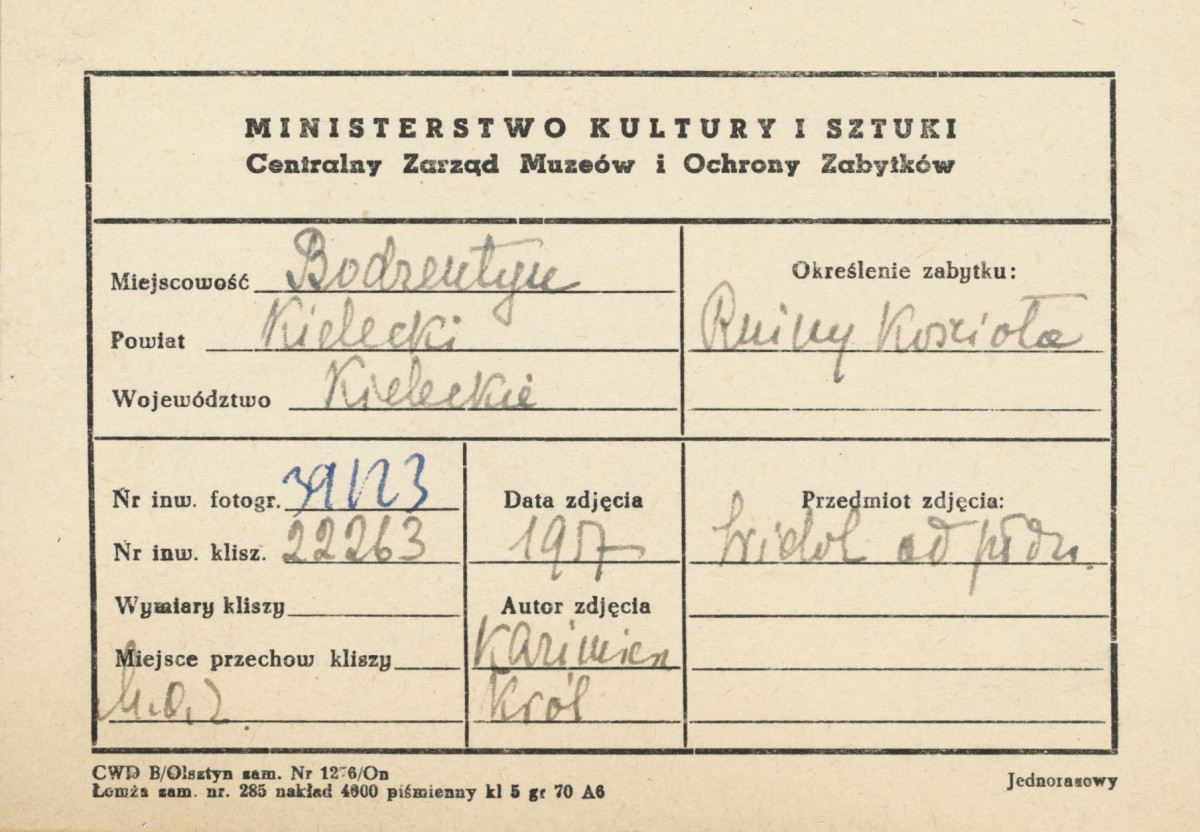 MINISTERSTWO KULTURY I SZTUKI
Centralny Zarząd Muzeów i Ochrony Zabytków
Miejscowość Bodzentyn
Powiat Kielecki
Województwo Kieleckie
Określenie zabytku:
Ruiny Kościoła
Nr inw. fotogr. 39123
Nr inw. klisz. 22263
Wymiary kliszy
Miejsce przechow kliszy
M.O.Z
Data zdjęcia
1957
Autor zdjęcia
Kazimierz
Król
Przedmiot zdjęcia:
Widok od płdn.
CWD B/Olsztyn zam. Nr 1276/On
Łomża zam. nr. 285 nakład 4000 piśmienny kl 5 gr 70 A6
Jednorazowy